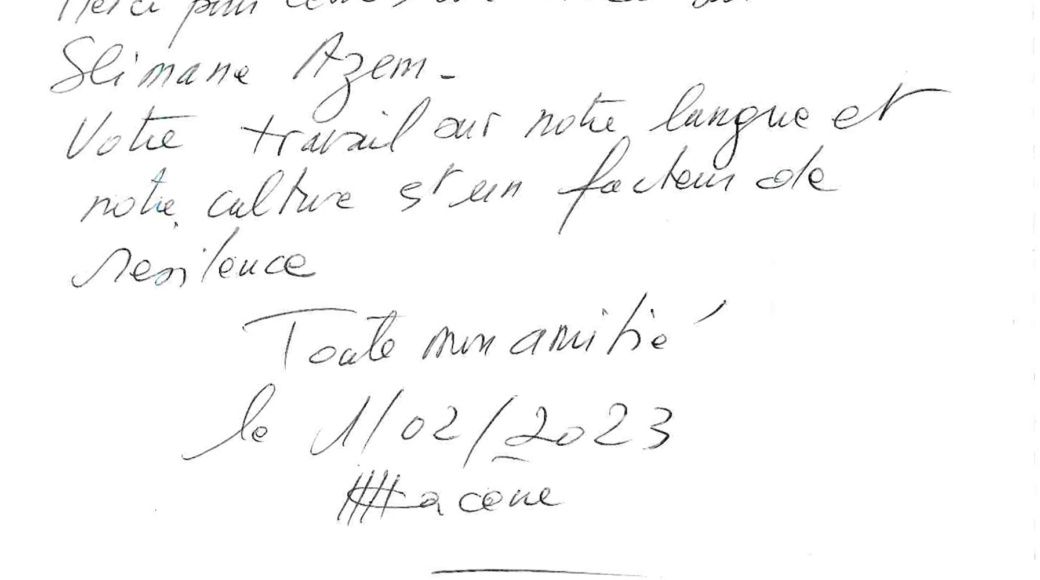 Merci pour
Slimane Azem-
Votre travail sur notre langue et
notre culture est un facteur de
resilence
Toute mon amitié
le 1/02/2023
Hacene